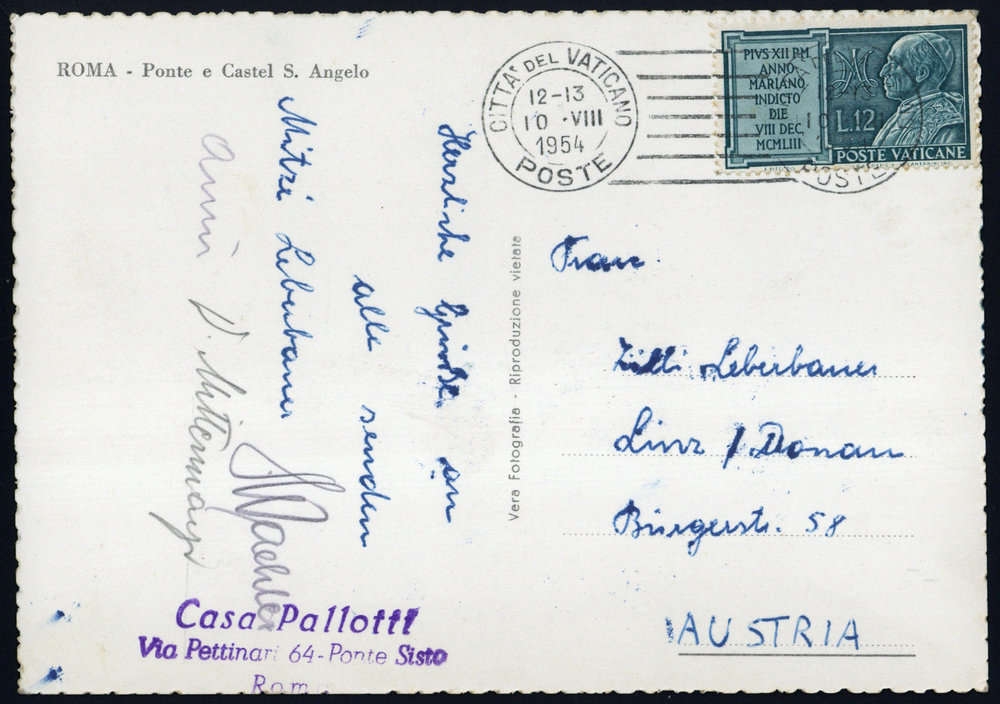 ROMA - Ponte e Castel S. Angelo
CITTA' DEL VATICANO
12-13
10 · VIII
1954
POSTE
PIVS XII P.M
ANNO
MARIANO
INDICTO
DIE
VIII DEC.
MCMLIII
L.12
POSTE VATICANE
POSTE
Herzliche Grüße an
alle senden
Mitzi Leberbauer
Anni
Vera Fotografia - Riproduzione vietata
Frau
Zilli Leberbauer
Linz / Donau
Bürgerstr. 58
AUSTRIA
Casa Pallotti
Via Pettinari 64-Ponte Sisto
Roma